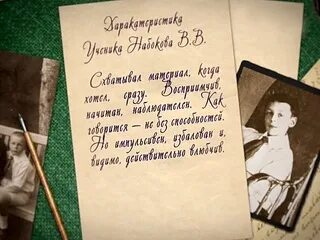 Характеристика
Ученика Набокова В.В.
Схватывал материал, когда
хотел, сразу. Восприимчив,
начитан, наблюдателен. Как
говорится – не без способностей.
Но импульсивен, избалован и,
видимо, действительно влюбчив.